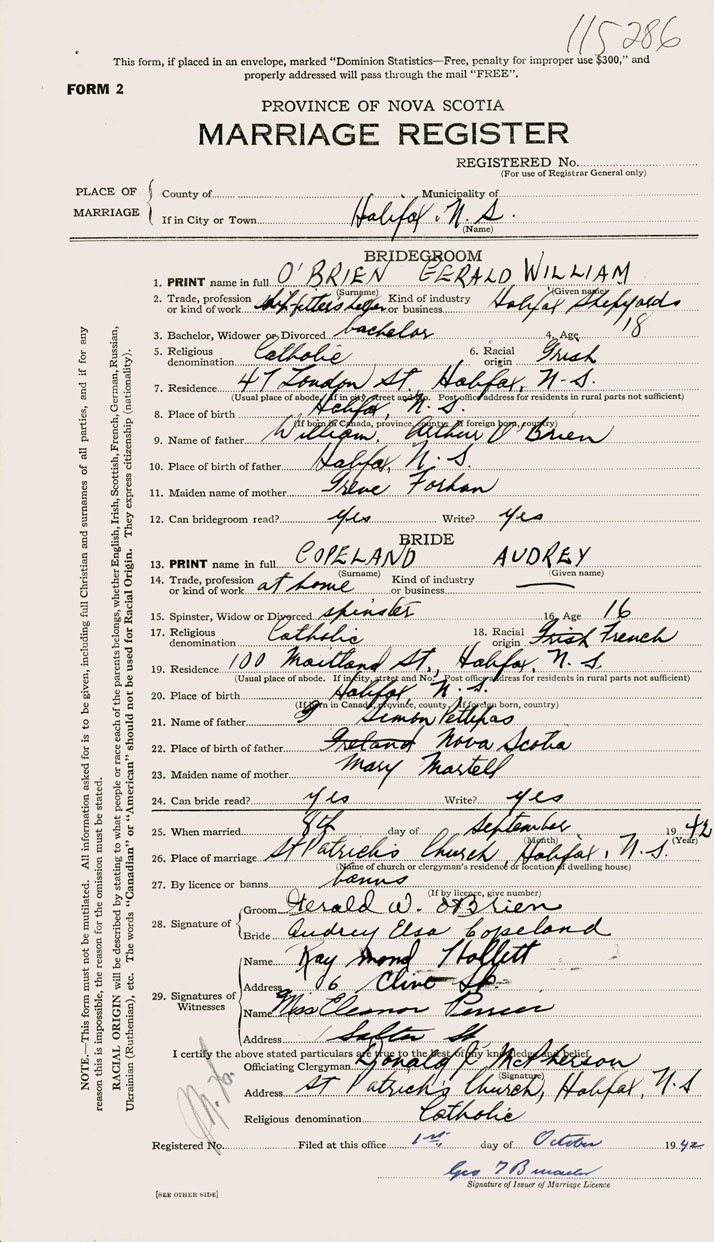 115286
This form, if placed in an envelope, marked "Dominion Statistics—Free, penalty for improper use $300," and
properly addressed will pass through the mail "FREE".
FORM 2
PROVINCE OF NOVA SCOTIA
MARRIAGE REGISTER
REGISTERED No.
(For use of Registrar General only)
PLACE OF MARRIAGE
County of Municipality of
If in City or Town Halifax, N. S.
(Name)
BRIDEGROOM
1. PRINT name in full O'BRIEN GERALD WILLIAM
(Surname) (Given name)
2. Trade, profession or kind of work fitters helper Kind of industry or business Halifax Shipyards
3. Bachelor, Widower or Divorced bachelor 4. Age 18
5. Religious denomination Catholic 6. Racial origin Irish
7. Residence 47 London St. Halifax, N. S.
(Usual place of abode. If in city, street and No. Post office address for residents in rural parts not sufficient)
8. Place of birth Halifax, N. S.
(If born in Canada, province, county. If foreign born, country)
9. Name of father William Arthur O'Brien
10. Place of birth of father Halifax, N. S.
11. Maiden name of mother Irene Forhan
12. Can bridegroom read? yes Write? yes
BRIDE
13. PRINT name in full COPELAND AUDREY
(Surname) (Given name)
14. Trade, profession or kind of work at home Kind of industry or business
15. Spinster, Widow or Divorced spinster 16. Age 16
17. Religious denomination Catholic 18. Racial origin Irish French
19. Residence 100 Maitland St., Halifax, N. S.
(Usual place of abode. If in city, street and No. Post office address for residents in rural parts not sufficient)
20. Place of birth Halifax, N. S.
(If born in Canada, province, county. If foreign born, country)
21. Name of father Simon Pettipas
22. Place of birth of father Ireland Nova Scotia
23. Maiden name of mother Mary Martell
24. Can bride read? yes Write? yes
25. When married 8th day of September 1942
(Month) (Year)
26. Place of marriage St Patrick's Church, Halifax, N. S.
(Name of church or clergyman's residence or location if dwelling house)
27. By licence or banns banns
(If by licence, give number)
28. Signature of
Groom Gerald W. O'Brien
Bride Audrey Elsa Copeland
29. Signatures of Witnesses
Name Raymond Hollett
Address 6 St.
Name Miss Eleanor
Address Salter St
I certify the above stated particulars are true to the best of my knowledge and belief.
Officiating Clergyman Donald McPherson
(Signature)
Address St Patrick's Church, Halifax, N. S
Religious denomination Catholic
Registered No. Filed at this office 1st day of October 1942
Geo
Signature of Issuer of Marriage Licence
[SEE OTHER SIDE]
NOTE.—This form must not be mutilated. All information asked for is to be given, including full Christian and surnames of all parties, and if for any
reason this is impossible, the reason for the omission must be stated.
RACIAL ORIGIN will be described by stating to what people or race each of the parents belongs, whether English, Irish, Scottish, French, German, Russian,
Ukrainian (Ruthenian), etc. The words "Canadian" or "American" should not be used for Racial Origin. They express citizenship (nationality).